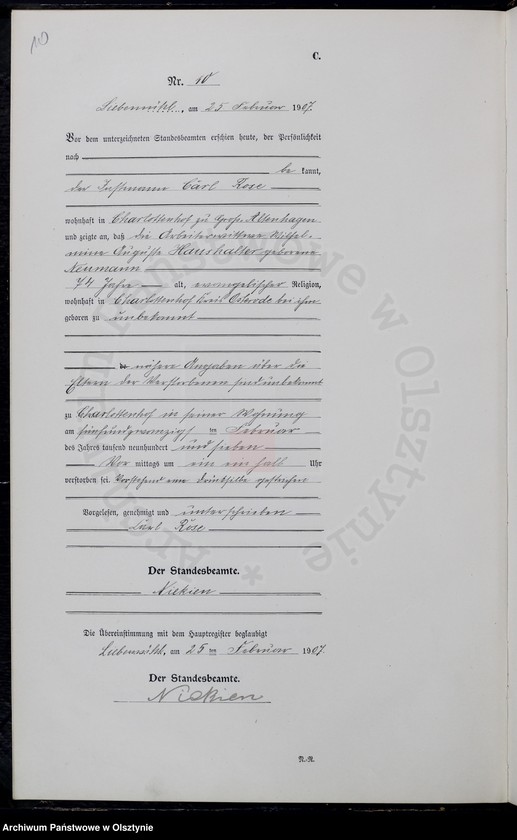 10
C.
Nr. 10
Liebemühl, am 25 Februar 1907.
Vor dem unterzeichneten Standesbeamten erschien heute, der Persönlichkeit
nach
be kannt,
der Instmann Carl Rose
wohnhaft in Charlottenhof zu Groß Altenhagen
und zeigte an, daß die Arbeiterwittwe Wilhel-
mine Auguste Haushalter geborene
Neumann
74 Jahre alt, evangelischer Religion,
wohnhaft in Charlottenhof Kreis Osterode bei ihm
geboren zu unbekannt
nähere Angaben über die
Eltern der Verstorbenen sind unbekannt
zu Charlottenhof in seiner Wohnung
am fünfundzwanzigsten Februar
des Jahres tausend neunhundert und sieben
Vor mittags um ein halb Uhr
verstorben sei. Vorstehend eine Druckstelle gestrichen
Vorgelesen, genehmigt und unterschrieben
Carl Rose
Der Standesbeamte.
Nickien
Die Übereinstimmung mit dem Hauptregister beglaubigt
Liebemühl, am 25 ten Februar 1907.
Der Standesbeamte.
Nickien
N.-R.
Archiwum Państwowe w Olsztynie *
Archiwum Państwowe w Olsztynie